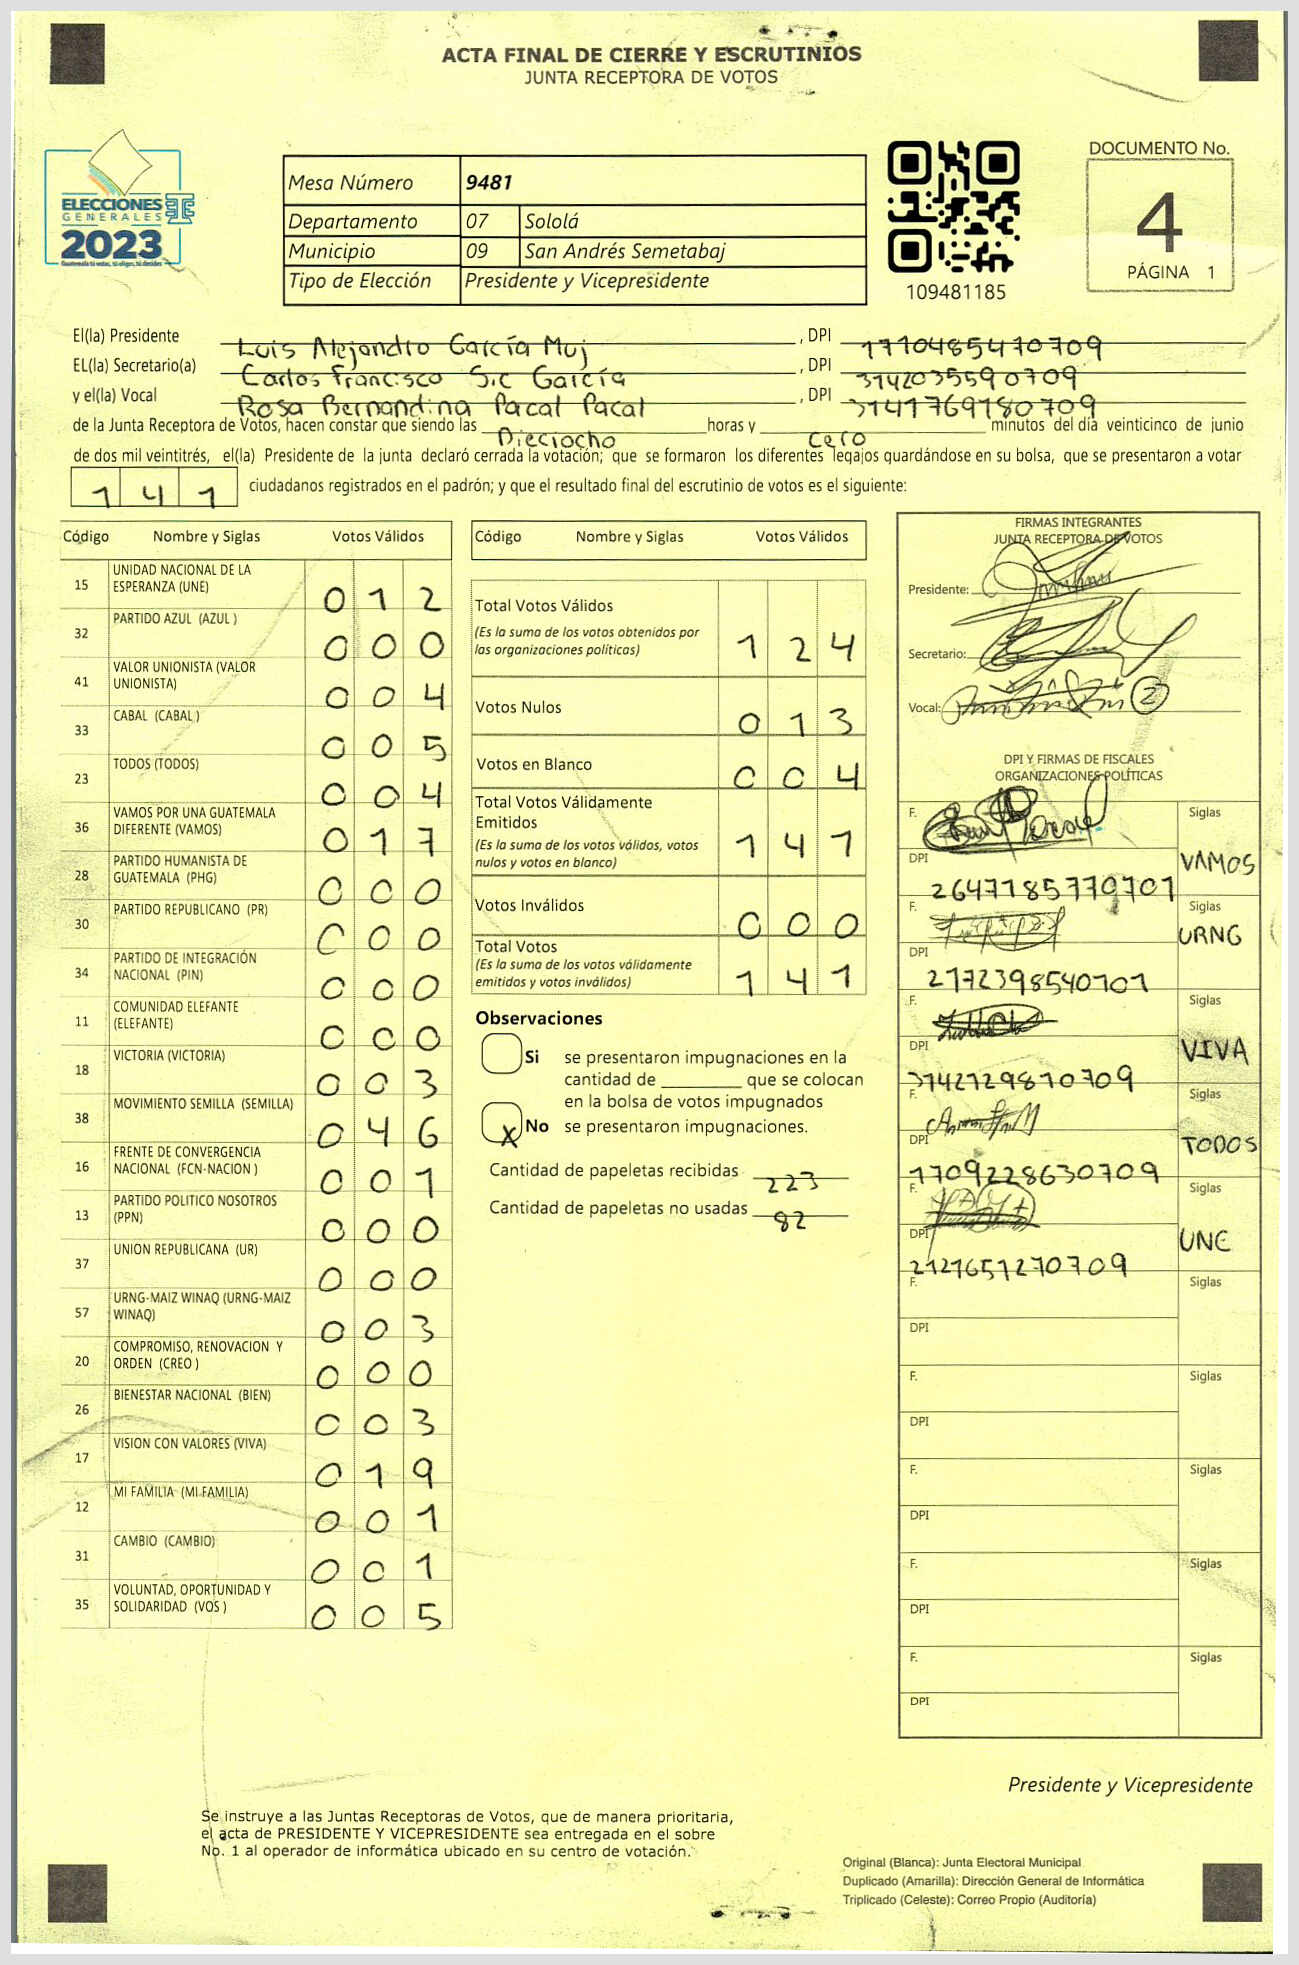 ACTA FINAL DE CIERRE Y ESCRUTINIOS
JUNTA RECEPTORA DE VOTOS
ELECCIONES
GENERALES
2023
Guatemala tú votas, tú eliges, tú decides
Mesa Número 9481
Departamento 07 Sololá
Municipio 09 San Andrés Semetabaj
Tipo de Elección Presidente y Vicepresidente
109481185
DOCUMENTO No.
4
PÁGINA 1
El(la) Presidente Luis Alejandro García Muj , DPI 1710485470709
EL(la) Secretario(a) Carlos Francisco Sic García , DPI 3142035590709
y el(la) Vocal Rosa Bernandina Pacal Pacal , DPI 3141769180709
de la Junta Receptora de Votos, hacen constar que siendo las Dieciocho horas y cero minutos del día veinticinco de junio
de dos mil veintitrés, el(la) Presidente de la junta declaró cerrada la votación; que se formaron los diferentes legajos guardándose en su bolsa, que se presentaron a votar
141 ciudadanos registrados en el padrón; y que el resultado final del escrutinio de votos es el siguiente:
Código Nombre y Siglas Votos Válidos
15 UNIDAD NACIONAL DE LA ESPERANZA (UNE) 012
32 PARTIDO AZUL (AZUL ) 000
41 VALOR UNIONISTA (VALOR UNIONISTA) 004
33 CABAL (CABAL ) 005
23 TODOS (TODOS) 004
36 VAMOS POR UNA GUATEMALA DIFERENTE (VAMOS) 017
28 PARTIDO HUMANISTA DE GUATEMALA (PHG) 000
30 PARTIDO REPUBLICANO (PR) 000
34 PARTIDO DE INTEGRACIÓN NACIONAL (PIN) 000
11 COMUNIDAD ELEFANTE (ELEFANTE) 000
18 VICTORIA (VICTORIA) 003
38 MOVIMIENTO SEMILLA (SEMILLA) 046
16 FRENTE DE CONVERGENCIA NACIONAL (FCN-NACION ) 001
13 PARTIDO POLITICO NOSOTROS (PPN) 000
37 UNION REPUBLICANA (UR) 000
57 URNG-MAIZ WINAQ (URNG-MAIZ WINAQ) 003
20 COMPROMISO, RENOVACION Y ORDEN (CREO ) 000
26 BIENESTAR NACIONAL (BIEN) 003
17 VISION CON VALORES (VIVA) 019
12 MI FAMILIA (MI FAMILIA) 001
31 CAMBIO (CAMBIO) 001
35 VOLUNTAD, OPORTUNIDAD Y SOLIDARIDAD (VOS ) 005
Código Nombre y Siglas Votos Válidos
Total Votos Válidos 124
(Es la suma de los votos obtenidos por
las organizaciones políticas)
Votos Nulos 013
Votos en Blanco 004
Total Votos Válidamente
Emitidos 141
(Es la suma de los votos válidos, votos
nulos y votos en blanco)
Votos Inválidos 000
Total Votos 141
(Es la suma de los votos válidamente
emitidos y votos inválidos)
Observaciones
Si se presentaron impugnaciones en la
cantidad de ________ que se colocan
en la bolsa de votos impugnados
X No se presentaron impugnaciones.
Cantidad de papeletas recibidas 223
Cantidad de papeletas no usadas 82
FIRMAS INTEGRANTES
JUNTA RECEPTORA DE VOTOS
Presidente:
Secretario:
Vocal:
DPI Y FIRMAS DE FISCALES
ORGANIZACIONES POLÍTICAS
F. Siglas
DPI 2647785770701 VAMOS
F. Siglas
DPI 2172398540701 URNG
F. Siglas
DPI 3142129870709 VIVA
F. Siglas
DPI 1709228630709 TODOS
F. Siglas
DPI 2121651270709 UNE
F. Siglas
DPI
F. Siglas
DPI
F. Siglas
DPI
F. Siglas
DPI
F. Siglas
DPI
Presidente y Vicepresidente
Se instruye a las Juntas Receptoras de Votos, que de manera prioritaria,
el acta de PRESIDENTE Y VICEPRESIDENTE sea entregada en el sobre
No. 1 al operador de informática ubicado en su centro de votación.
Original (Blanca): Junta Electoral Municipal
Duplicado (Amarilla): Dirección General de Informática
Triplicado (Celeste): Correo Propio (Auditoría)